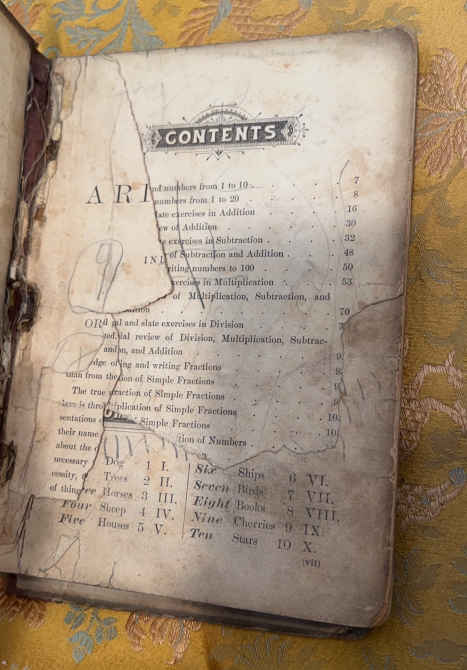 CONTENTS
ARI
nd numbers from 1 to 10 7
numbers from 1 to 20 8
late exercises in Addition 16
ew of Addition 30
e exercises in Subtraction 32
of Subtraction and Addition 48
IND
riting numbers to 100 50
exercises in Multiplication 53
of Multiplication, Subtraction, and
dition 70
OR
al and slate exercises in Division 7
ial review of Division, Multiplication, Subtrac-
and Addition 9
ing and writing Fractions 9
than from the
ion of Simple Fractions
The true
raction of Simple Fractions 9
tiplication of Simple Fractions 10
sentations
Simple Fractions 10
their name
tion of Numbers
about the
necessary
Dog 1 I.
cessity,
Trees 2 II.
of thing
Horses 3 III.
Four Sheep 4 IV.
Five Houses 5 V.
Six Ships 6 VI.
Seven Birds 7 VII.
Eight Books 8 VIII.
Nine Cherries 9 IX.
Ten Stars 10 X.
(vii)